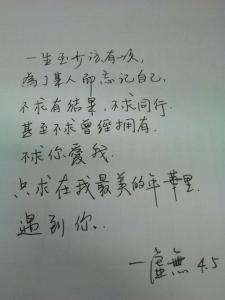 一生至少该有一次,
為了某人而忘记自己,
不求有结果,不求同行.
甚至不求曾經拥有.
不求你愛我.
只求在我最美的年華里.
遇到你.
一盧無 4.5